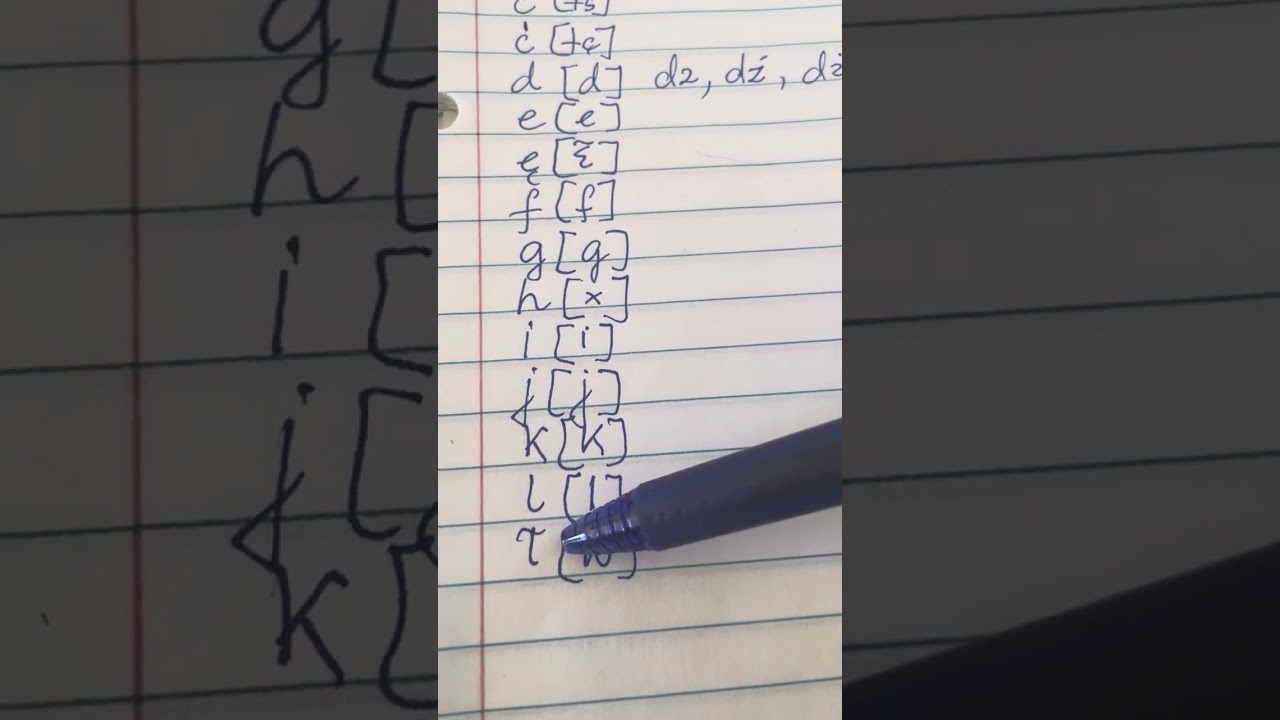 c [ts]
ć [tɕ]
d [d] dz, dź, dż
e [e]
ę [ɛ̃]
f [f]
g [g]
h [x]
i [i]
j [j]
k [k]
l [l]
ł [w]